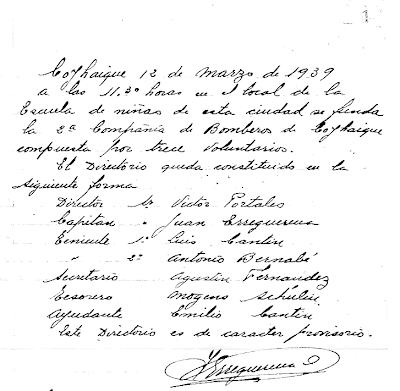 1
Coyhaique 12 de Marzo de 1939
a las 11.3º horas en el local de la
Escuela de niñas de esta ciudad se funda
la 2ª Compañia de Bomberos de Coyhaique
compuesta por trece Voluntarios.
El Directorio queda constituido en la
siguiente forma
Director Sr. Victor Portales
Capitan " Juan Erreguerena
Teniente 1º Luis Cantin
" 2º Antonio Bernabé
Secretario Agustin Fernandez
Tesorero Mogens
Ayudante Emilio Cantin
Este Directorio es de caracter provisorio.
JErreguerena